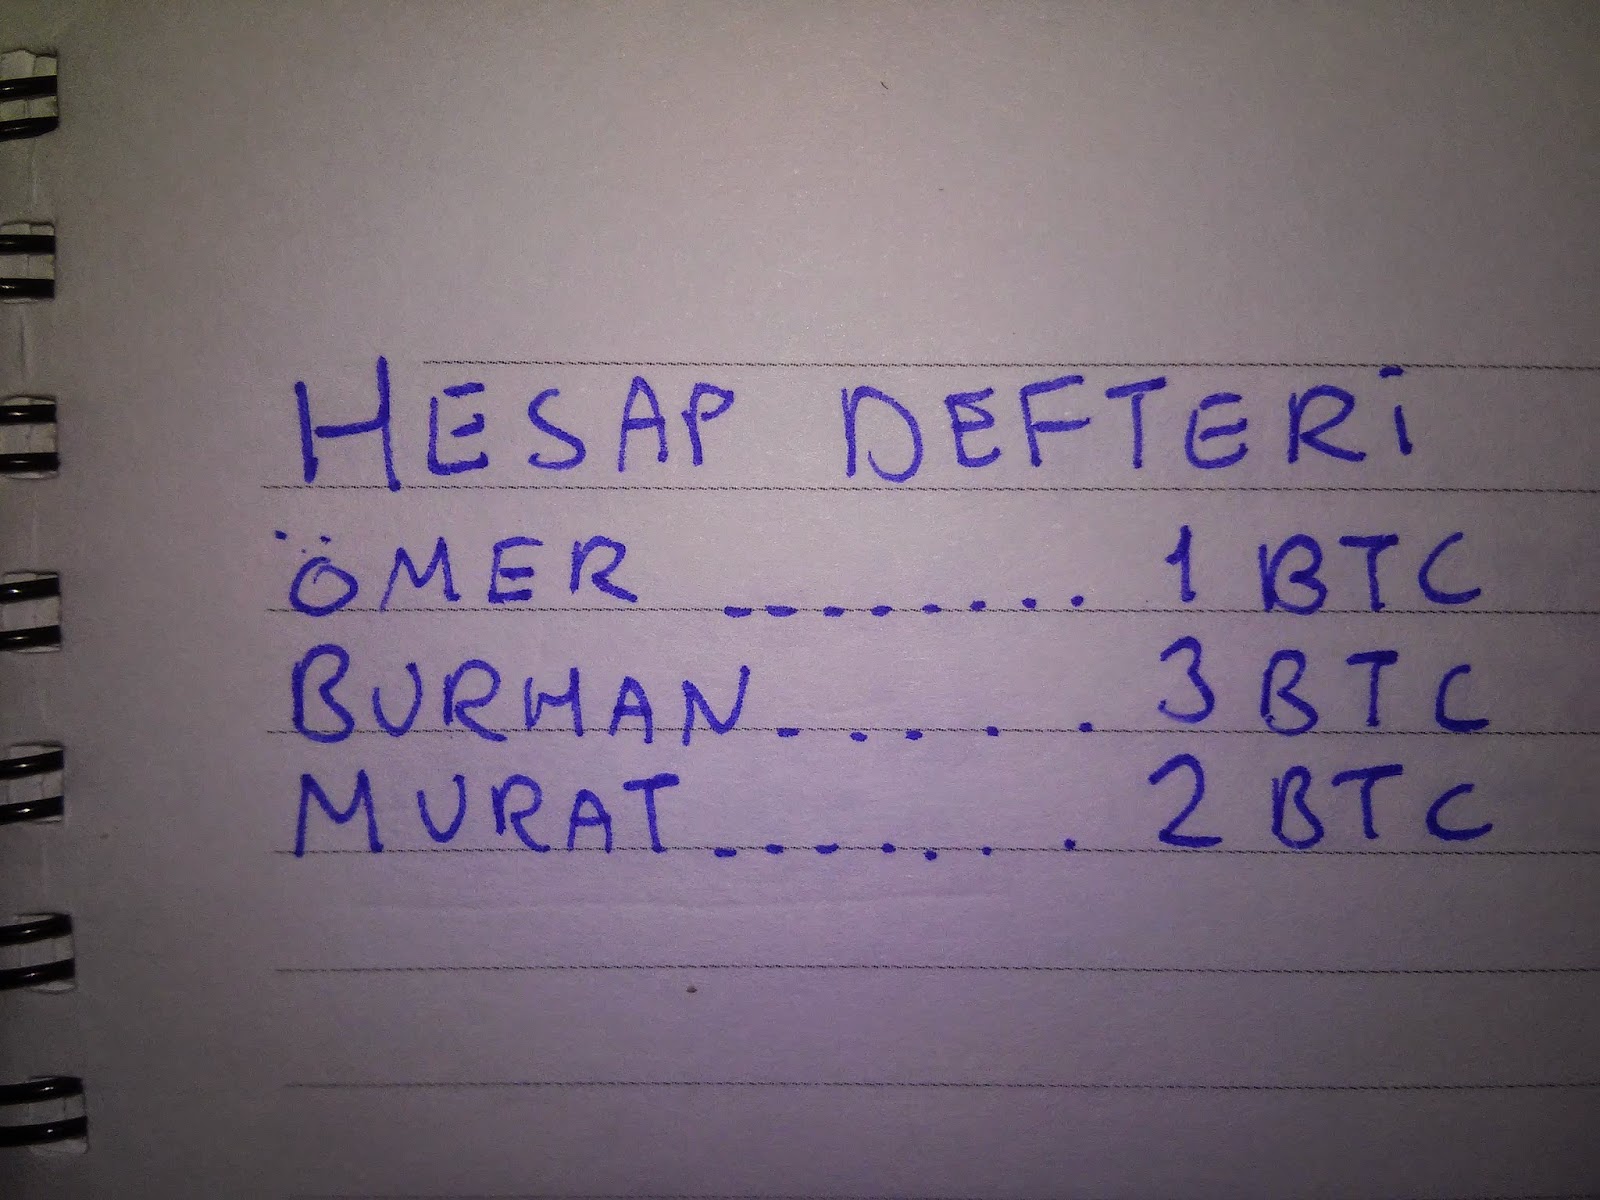 HESAP DEFTERİ
ÖMER ........ 1 BTC
BURHAN..... 3 BTC
MURAT....... 2 BTC